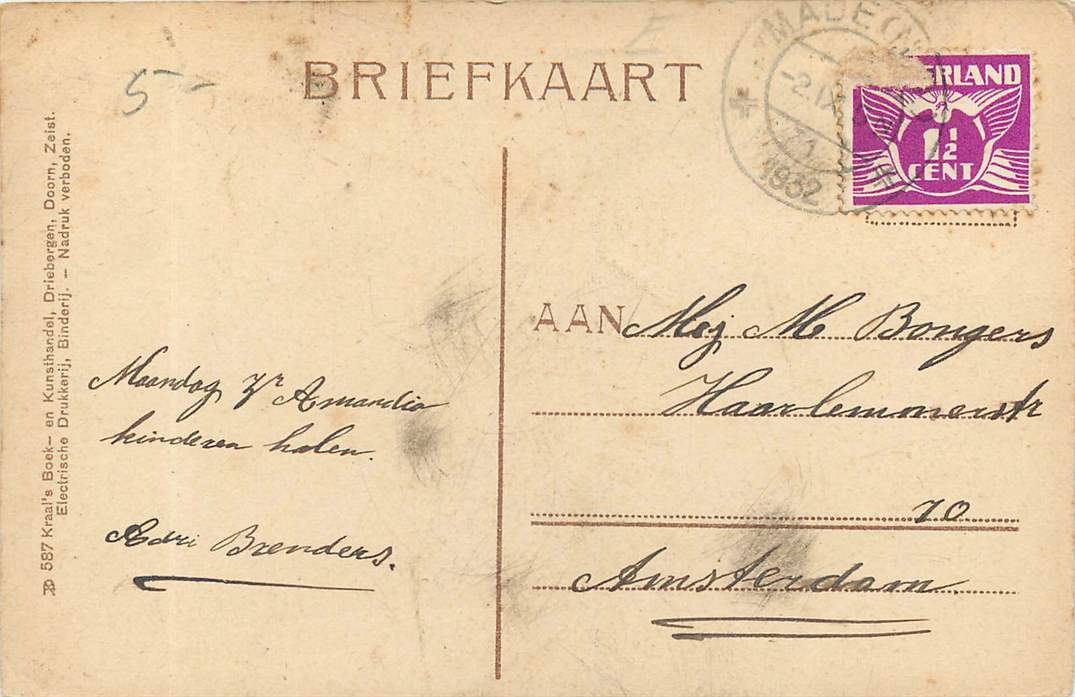 BRIEFKAART
5-
MADE (N.
2.IX
1932
ERLAND
1½
CENT
587 Kraal's Boek- en Kunsthandel, Driebergen, Doorn, Zeist.
Electrische Drukkerij, Binderij. - Nadruk verboden.
Maandag Zr Amandia
kinderen halen.
Adri Brenders.
AAN Mej M Bongers
Haarlemmerstr
70
Amsterdam.